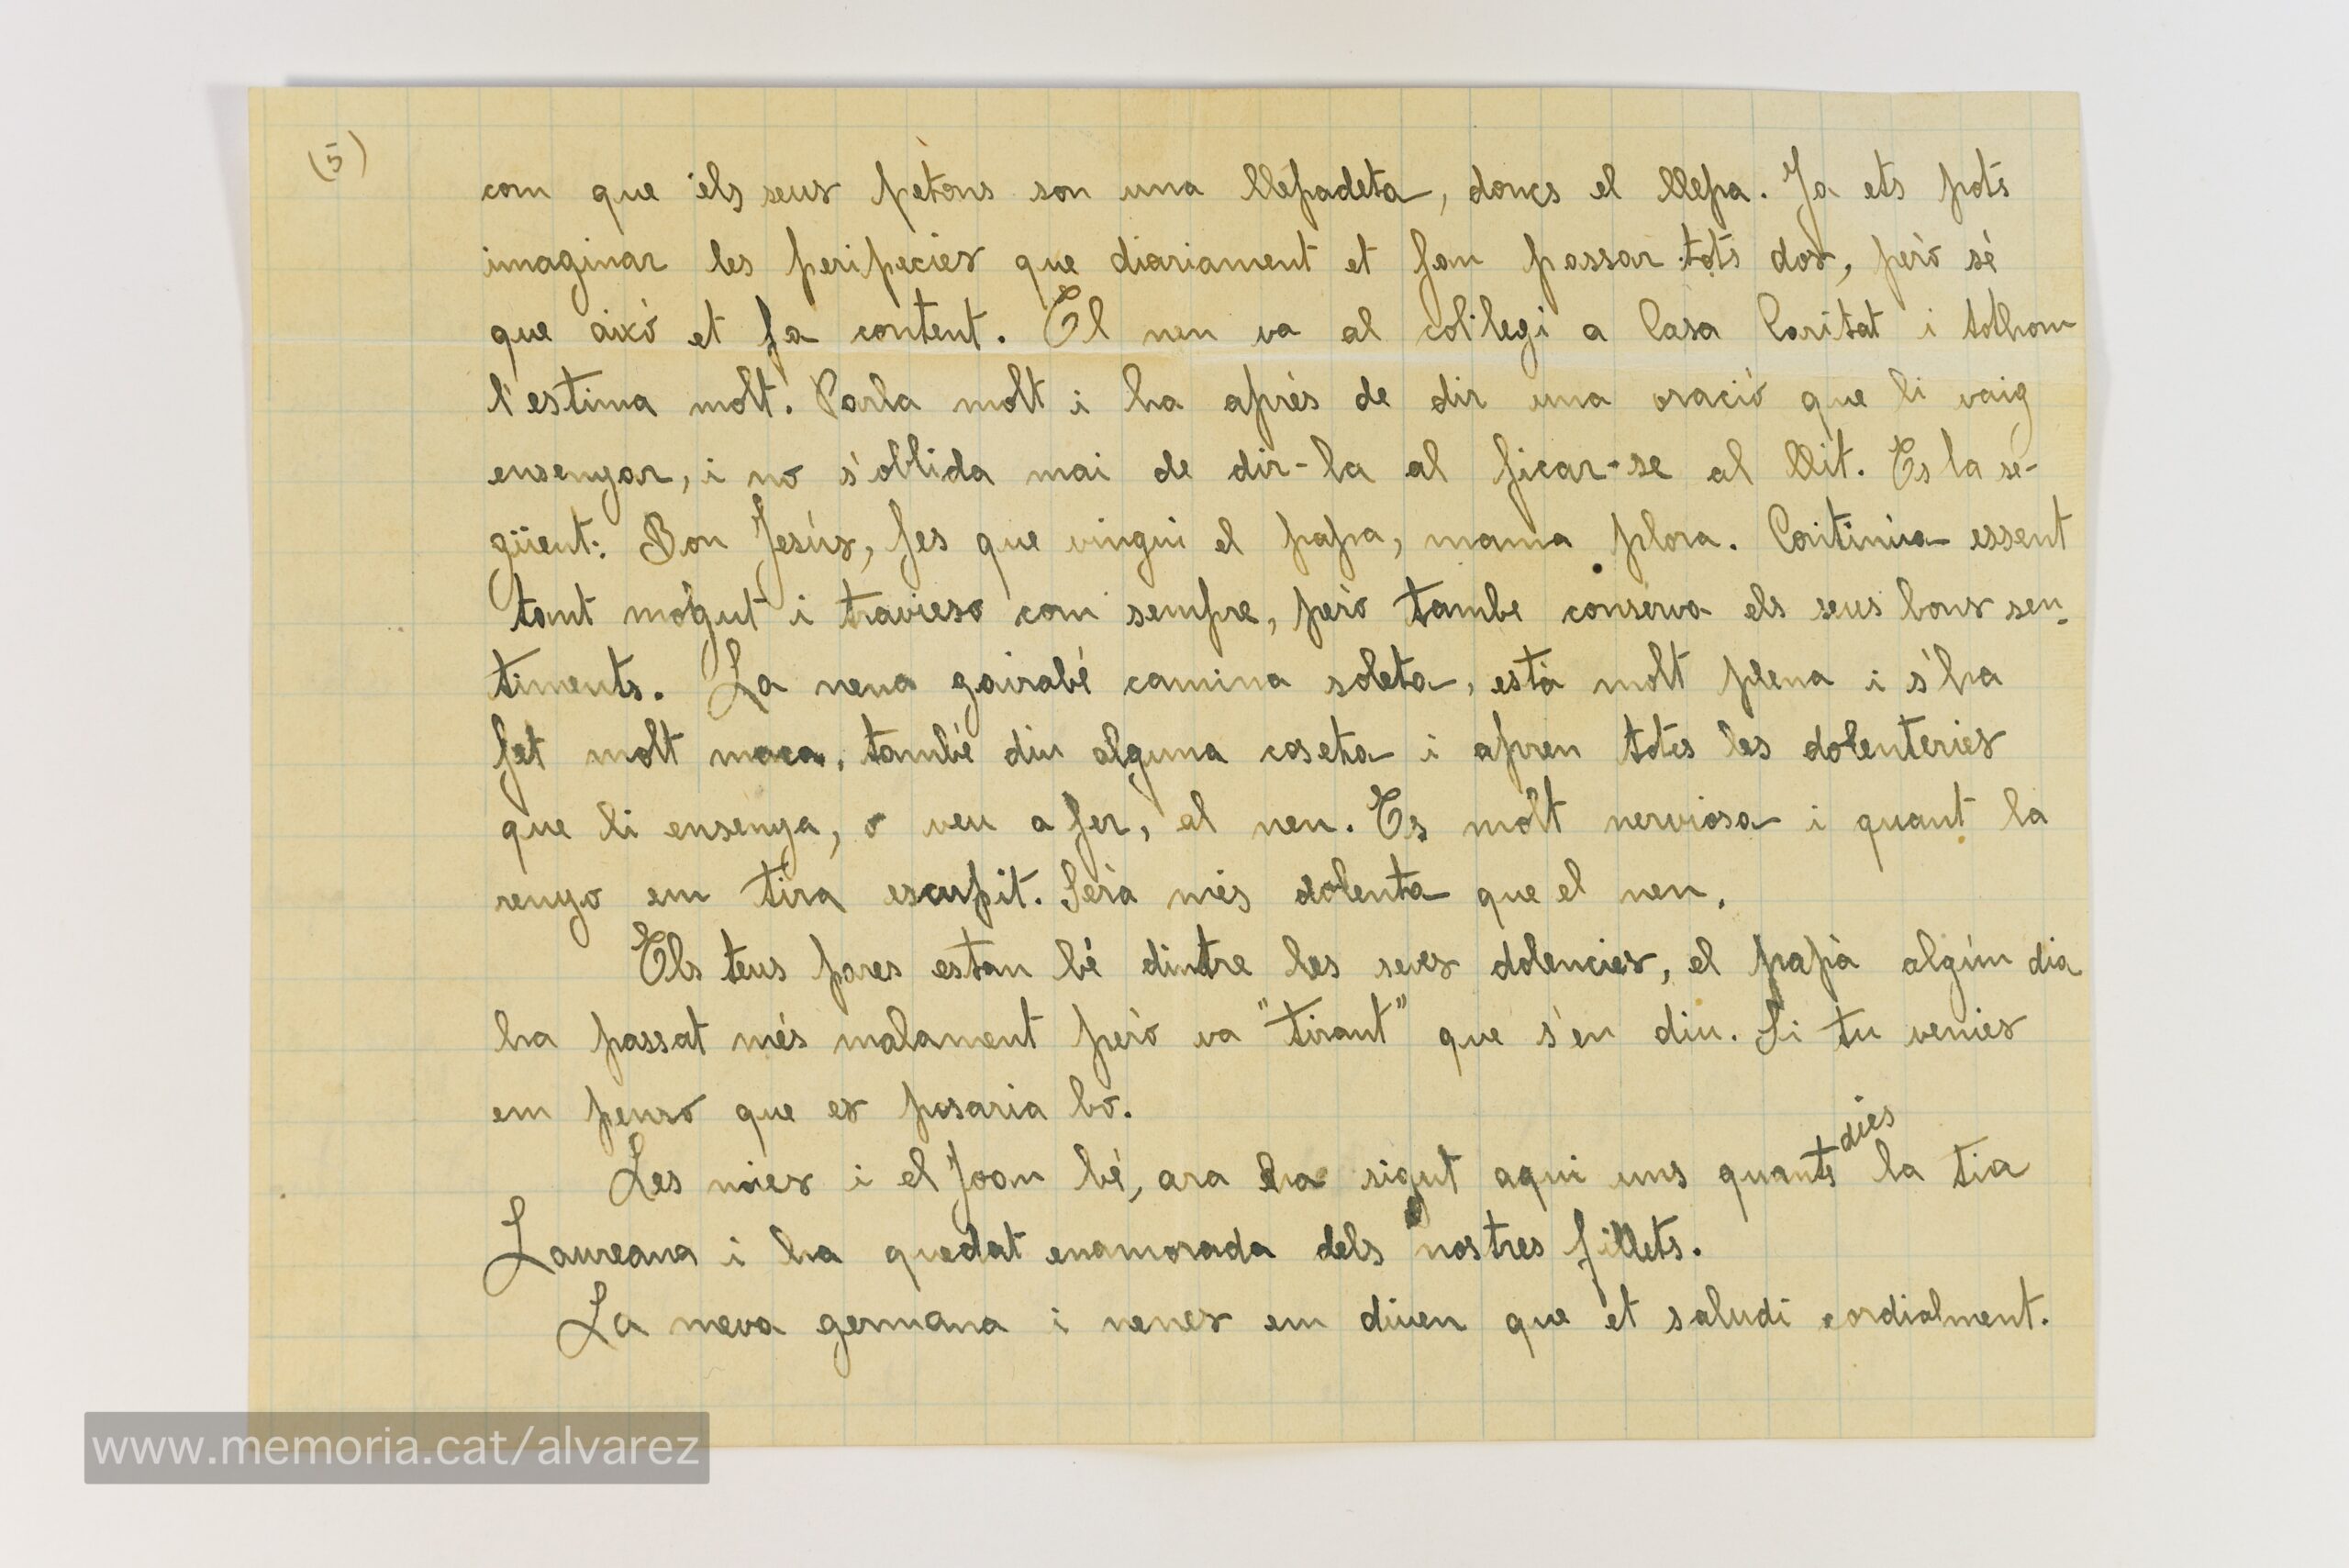 (5)
com que els seus petons son una llepadeta, doncs el llepa. Ja ets pots
imaginar les peripecies que diariament et fan passar tots dos, però sé
que aixó et fa content. El nen va al col·legi a Casa Caritat i tothom
l'estima molt. Parla molt i ha aprés de dir una oració que li vaig
ensenyar, i no s'oblida mai de dir-la al ficar-se al llit. Es la se-
güent: Bon Jesús, fes que vingui el papa, mama plora. Continúa essent
tant mogut i travieso com sempre, però tambe conserva els seus bons sen-
timents. La nena gairabé camina soleta, està molt plena i s'ha
fet molt maca, també diu alguna coseta i apren totes les dolenteries
que li ensenya, o veu a fer, el nen. Es molt nerviosa i quant la
renyo em tira escupit. Serà més dolenta que el nen.
Els teus pares estan bé dintre les seves dolencies, el papà algún dia
ha passat més malament però va "tirant" que s'en diu. Si tu venies
em penso que es posaria bo.
Les noies i el Joan bé, ara ha sigut aqui uns quants dies la tia
Laureana i ha quedat enamorada dels nostres fillets.
La meva germana i nenes em diuen que et saludi cordialment.
www.memoria.cat/alvarez